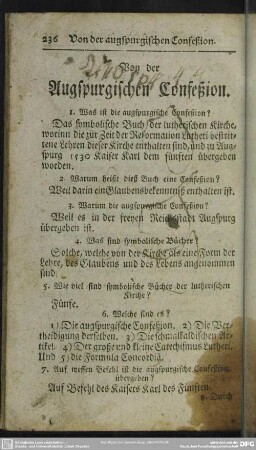 236 Von der augspurgischen Confeßion.
Von der
Augspurgischen Confeßion.
1. Was ist die augspurgische Confeßion?
Das symbolische Buch der lutherischen Kirche,
worinn die zur Zeit der Reformation Lutheri bestrit-
tene Lehren dieser Kirche enthalten sind, und zu Aug-
spurg 1530 Kaiser Karl dem fünften übergeben
worden.
2. Warum heißt dieß Buch eine Confeßion?
Weil darin ein Glaubensbekenntniß enthalten ist.
3. Warum die augspurgische Confeßion?
Weil es in der freyen Reichsstadt Augspurg
übergeben ist.
4. Was sind symbolische Bücher?
Solche, welche von der Kirche als eine Form der
Lehre, des Glaubens und des Lebens angenommen
sind.
5. Wie viel sind symbolische Bücher der lutherischen
Kirche?
Fünfe.
6. Welche sind es?
1) Die augspurgische Confeßion. 2) Die Ver-
theidigung derselben. 3) Die schmalkaldischen Ar-
tikel. 4) Der große und kleine Catechismus Lutheri.
Und 5) die Formula Concordiä.
7. Auf wessen Befehl ist die augspurgische Confeßion
übergeben?
Auf Befehl des Kaisers Karl des Fünften.
8. Durch